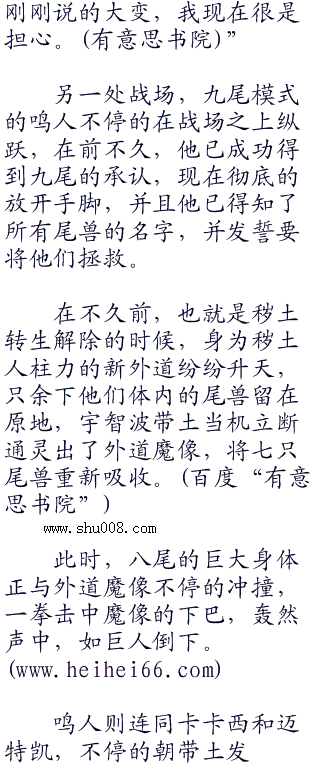 刚刚说的大变，我现在很是
担心。(有意思书院)”
另一处战场，九尾模式
的鸣人不停的在战场之上纵
跃，在前不久，他已成功得
到九尾的承认，现在彻底的
放开手脚，并且他已得知了
所有尾兽的名字，并发誓要
将他们拯救。
在不久前，也就是秽土
转生解除的时候，身为秽土
人柱力的新外道纷纷升天，
只余下他们体内的尾兽留在
原地，宇智波带土当机立断
通灵出了外道魔像，将七只
尾兽重新吸收。(百度“有意
思书院”)
www.shu008.com
此时，八尾的巨大身体
正与外道魔像不停的冲撞，
一拳击中魔像的下巴，轰然
声中，如巨人倒下。
(www.heihei66.com)
鸣人则连同卡卡西和迈
特凯，不停的朝带土发